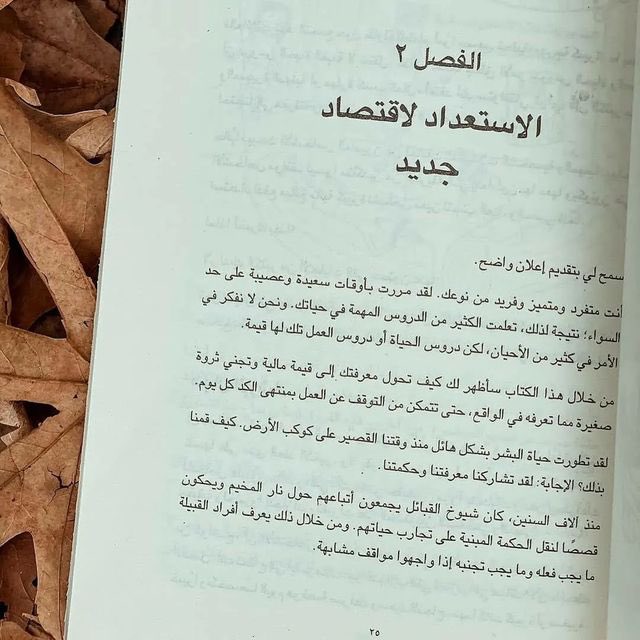 الفصل ٢
الاستعداد لاقتصاد
جديد
سمح لي بتقديم إعلان واضح.
أنت متفرد ومتميز وفريد من نوعك. لقد مررت بأوقات سعيدة وعصيبة على حد
السواء؛ نتيجة لذلك، تعلمت الكثير من الدروس المهمة في حياتك. ونحن لا نفكر في
الأمر في كثير من الأحيان، لكن دروس الحياة أو دروس العمل تلك لها قيمة.
من خلال هذا الكتاب سأظهر لك كيف تحول معرفتك إلى قيمة مالية وتجني ثروة
صغيرة مما تعرفه في الواقع، حتى تتمكن من التوقف عن العمل بمنتهى الكد كل يوم.
لقد تطورت حياة البشر بشكل هائل منذ وقتنا القصير على كوكب الأرض. كيف قمنا
بذلك؟ الإجابة: لقد تشاركنا معرفتنا وحكمتنا.
منذ آلاف السنين، كان شيوخ القبائل يجمعون أتباعهم حول نار المخيم ويحكون
قصصًا لنقل الحكمة المبنية على تجارب حياتهم. ومن خلال ذلك يعرف أفراد القبيلة
ما يجب فعله وما يجب تجنبه إذا واجهوا مواقف مشابهة.
٢٥